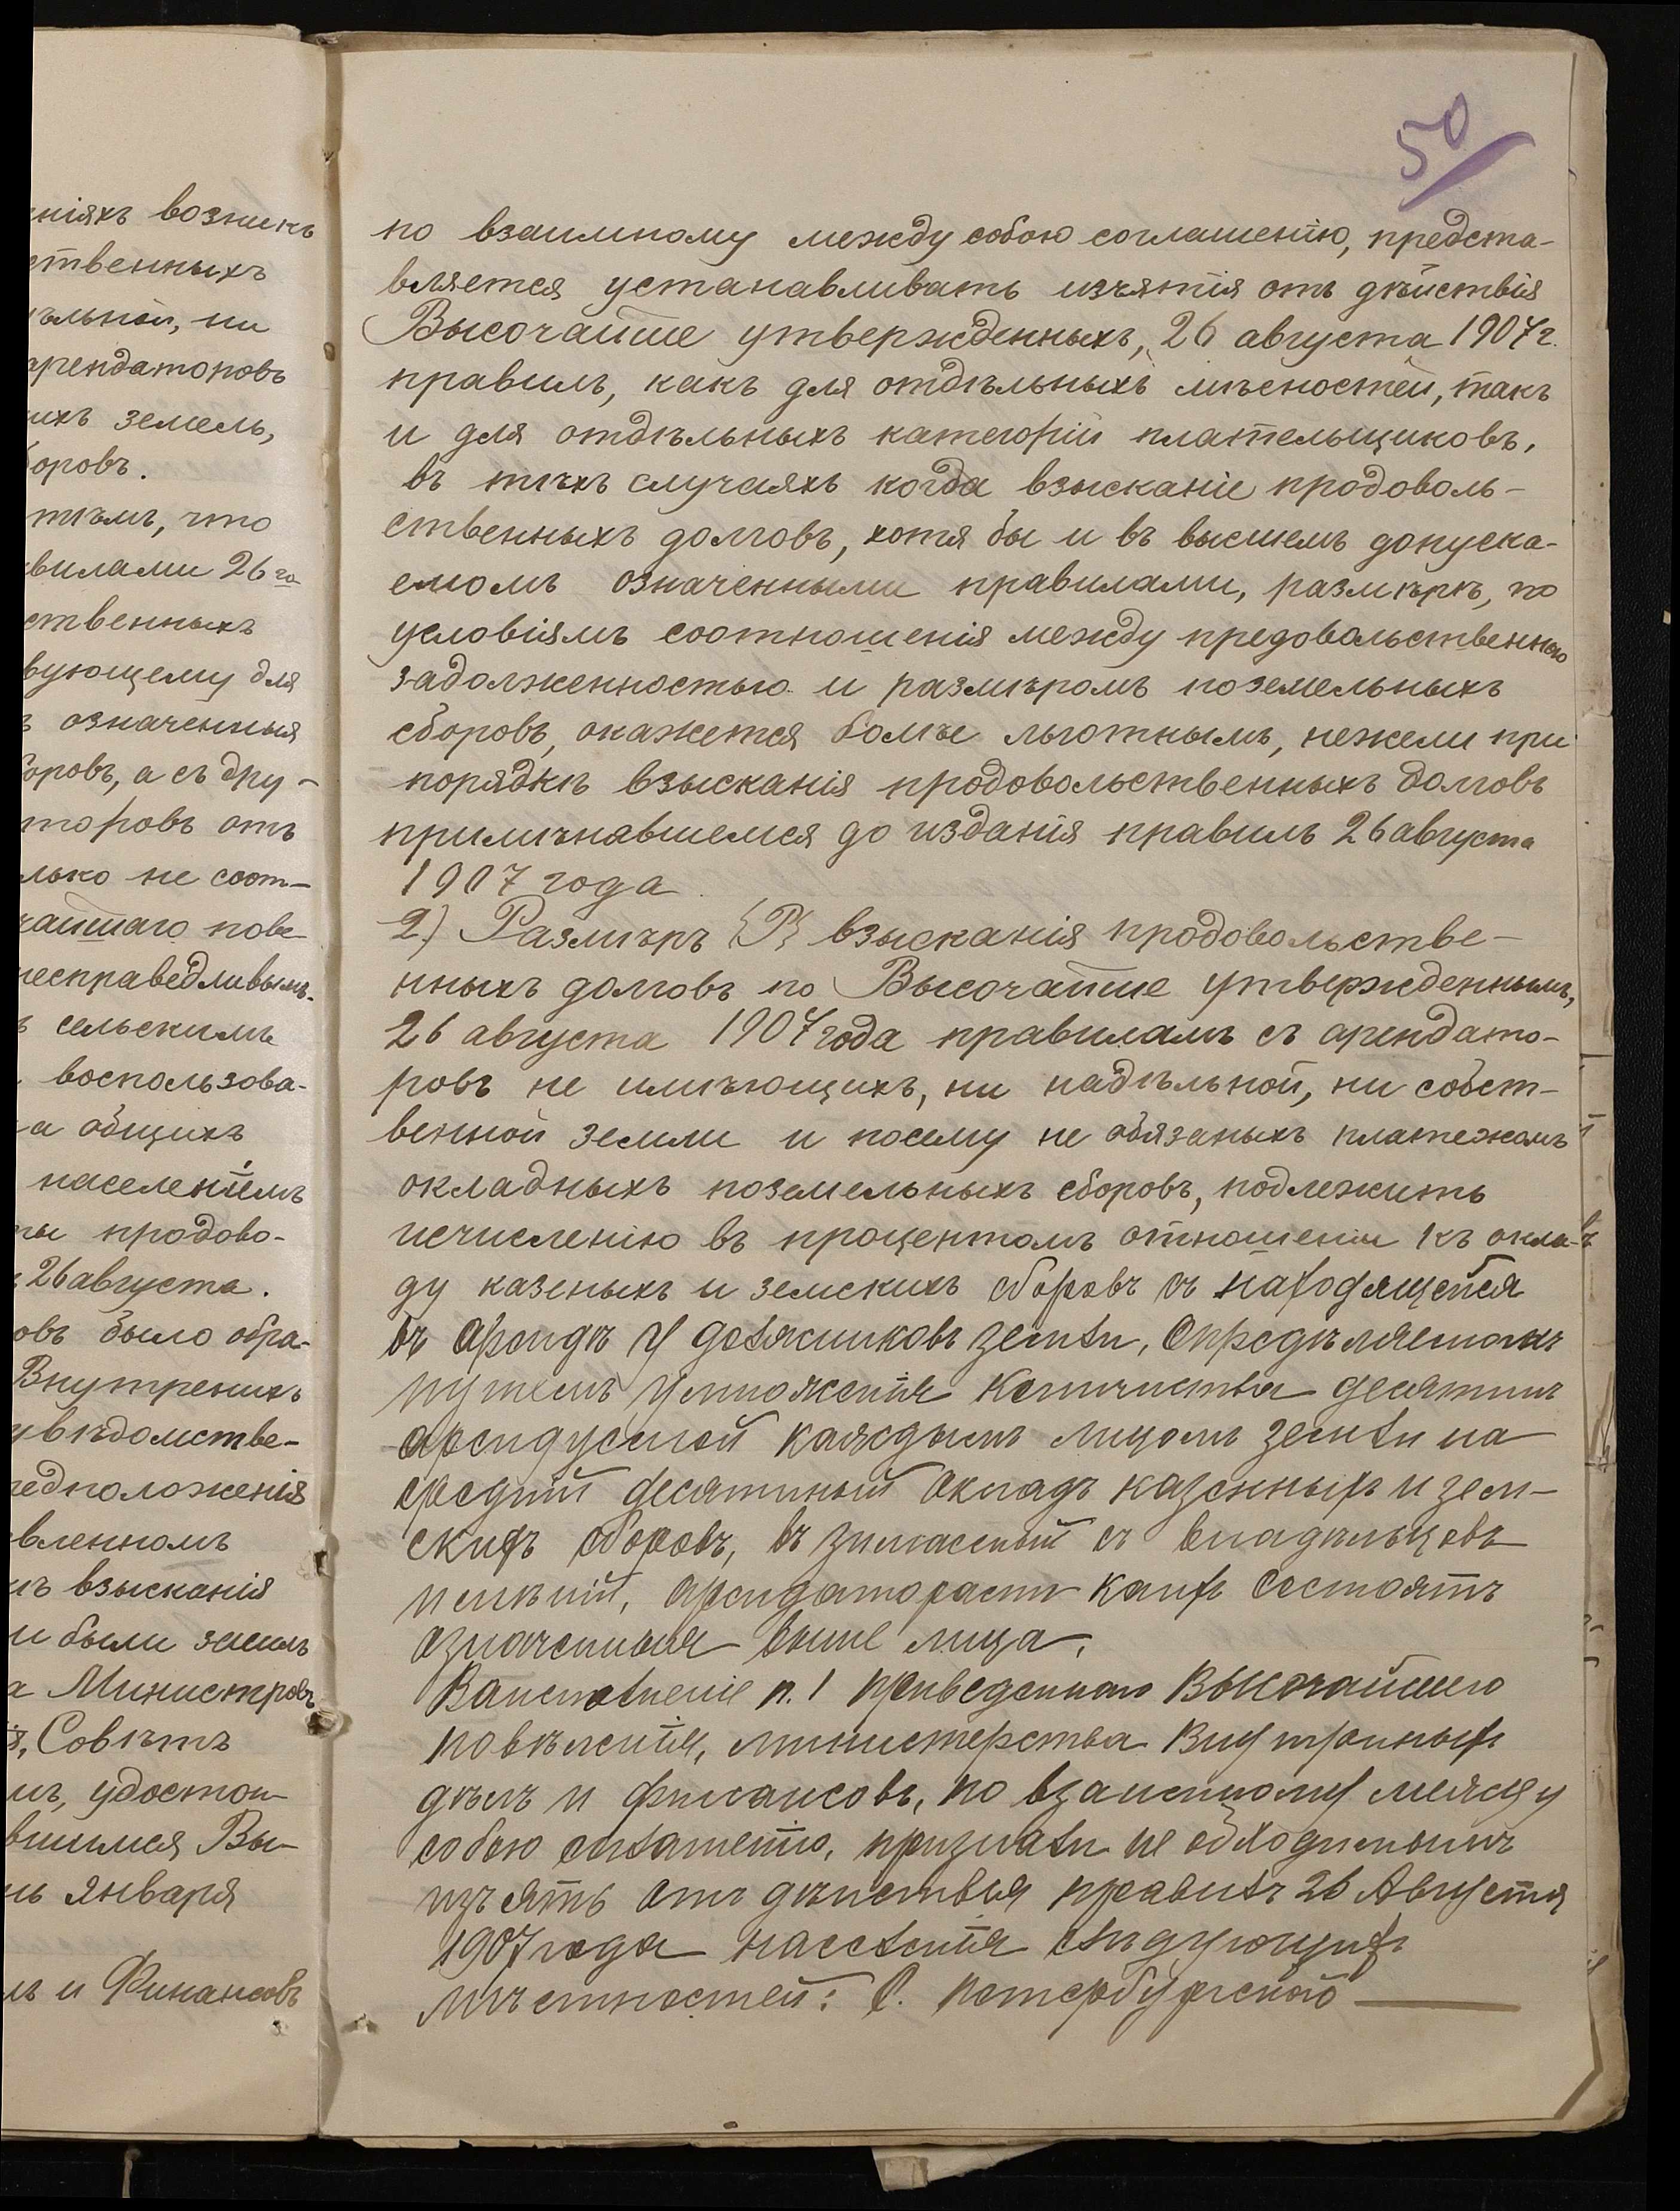 50
по взаимному между собою соглашенію, предста-
вляется устанавливать изъятія отъ дѣйствія
Высочайше утвержденныхъ, 26 августа 1907 г.
правилъ, какъ для отдѣльныхъ мѣсностей, такъ
и для отдѣльныхъ категорій плательщиковъ,
въ тѣхъ случаяхъ когда взысканіе продоволь-
ственныхъ долговъ, хотя бы и въ высшемъ допуска-
емомъ означенными правилами, размѣрѣ, по
условіямъ соотношенія между предовольственною
задолженностью и размѣромъ поземельныхъ
сборовъ, окажется болѣе льготнымъ, нежели при
порядкѣ взысканія продовольственныхъ долговъ
примѣнавшемся до изданія правилъ 26 августа
1907 года.
2) Размѣръ {Р} взысканія продовольстве-
нныхъ долговъ по Высочайше утвержденнымъ,
26 августа 1907 года правиламъ съ арендато-
ровъ не имѣющихъ, ни надѣльной, ни собст-
венной земли и посему не обязаныхъ платежомъ
окладныхъ поземельныхъ сборовъ, подлежитъ
исчисленію въ процентомъ отношеніи къ окла-
ду казеныхъ и земскихъ сборовъ съ находящейся
въ арендѣ у должниковъ земли, опредѣляемомъ
путемъ умноженія количества десятинъ
арендуемой каждымъ лицомъ земли на
средній десятинный окладъ казенныхъ и зем-
скихъ сборовъ, взимаемый съ владѣльцевъ
имѣній, арендаторами каихъ состоятъ
означенныя выше лица.
Ваисполненіе п. 1 приведеннаго Высочайшего
повѣленія, министерства Внутреныхъ
дѣлъ и финансовъ, по взаимному между
собою соглашенію, признали не обходимымъ
изъять отъ дѣиствія правилъ 26 Августа
1907 года населенія слѣдующихъ
мѣстностей: С. Петербургской
ніяхъ возник
ственныхъ
ѣльной, ни
арендаторовъ
ихъ земель,
боровъ.
тѣмъ, что
вилами 26 го
ственныхъ
вующему для
ъ означенныя
боровъ, а съ дру-
торовъ отъ
лько не соот-
чайшаго пове
несправедливымъ.
ъ сельскимъ
воспользова-
а общихъ
населеніемъ
ты продово-
26 августа.
овъ было обра-
Внутренихъ
увѣдомстве-
едположенія
вленномъ
ъ взысканія
и были
а Министровъ
я, Совѣтъ
мъ, удостои
вшимся Вы-
нь января
лъ и Финансовъ